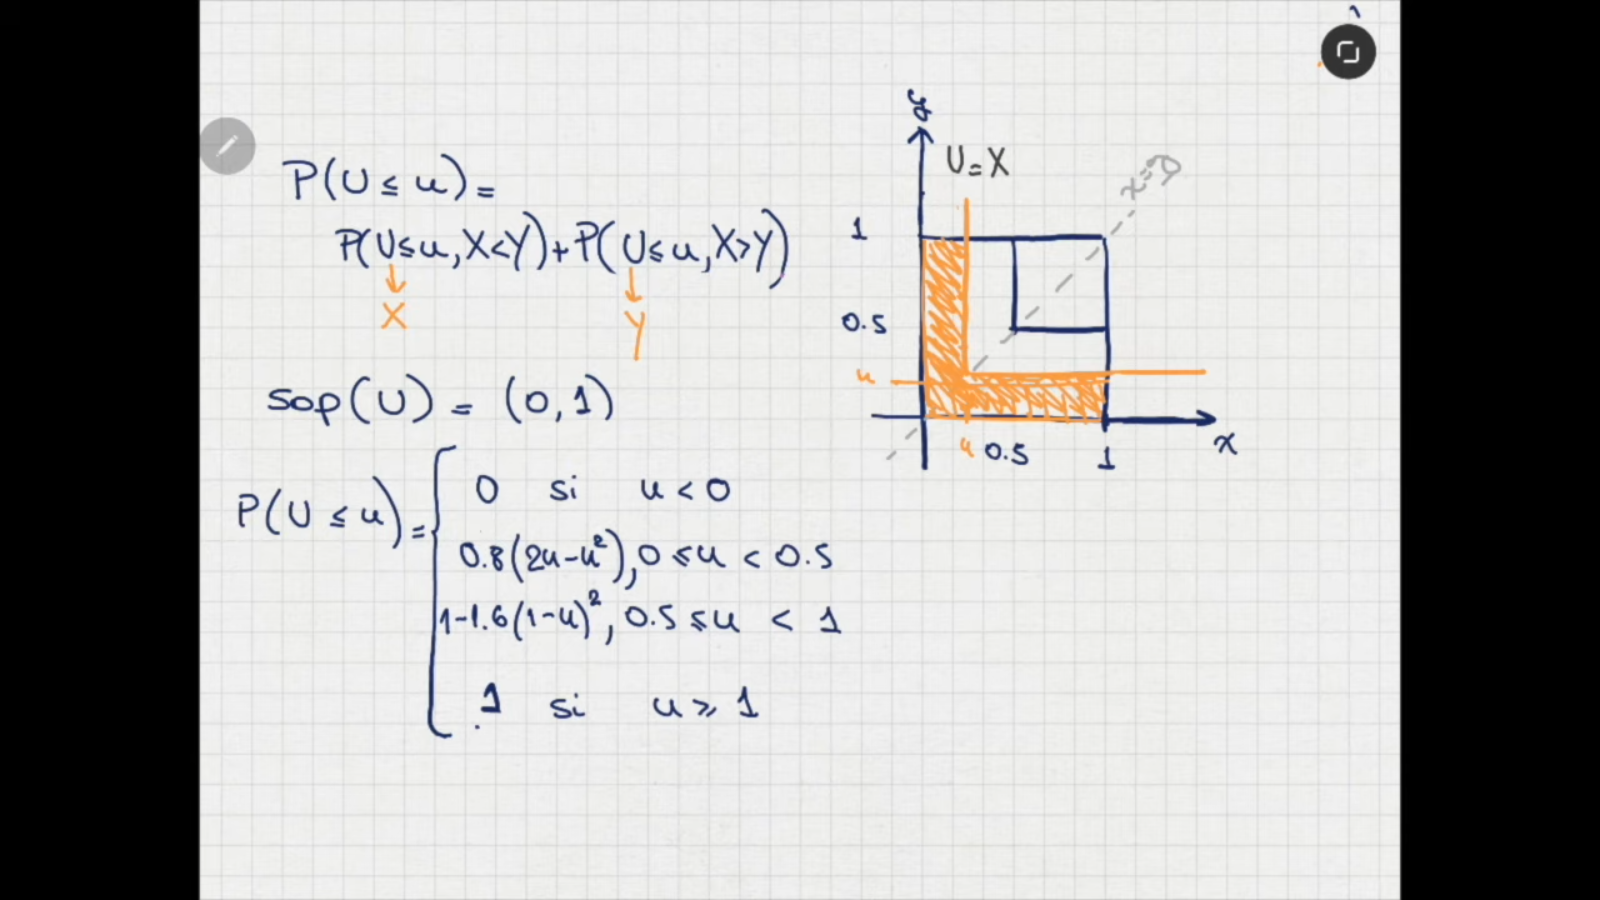 P(U ≤ u) =
P(U ≤ u, X < Y) + P(U ≤ u, X > Y)
X
Y
sop(U) = (0, 1)
P(U ≤ u) =
0 si u < 0
0.8(2u-u²), 0 ≤ u < 0.5
1-1.6(1-u)², 0.5 ≤ u < 1
1 si u ≥ 1
y
U = X
x=y
1
0.5
u
u
0.5
1
x